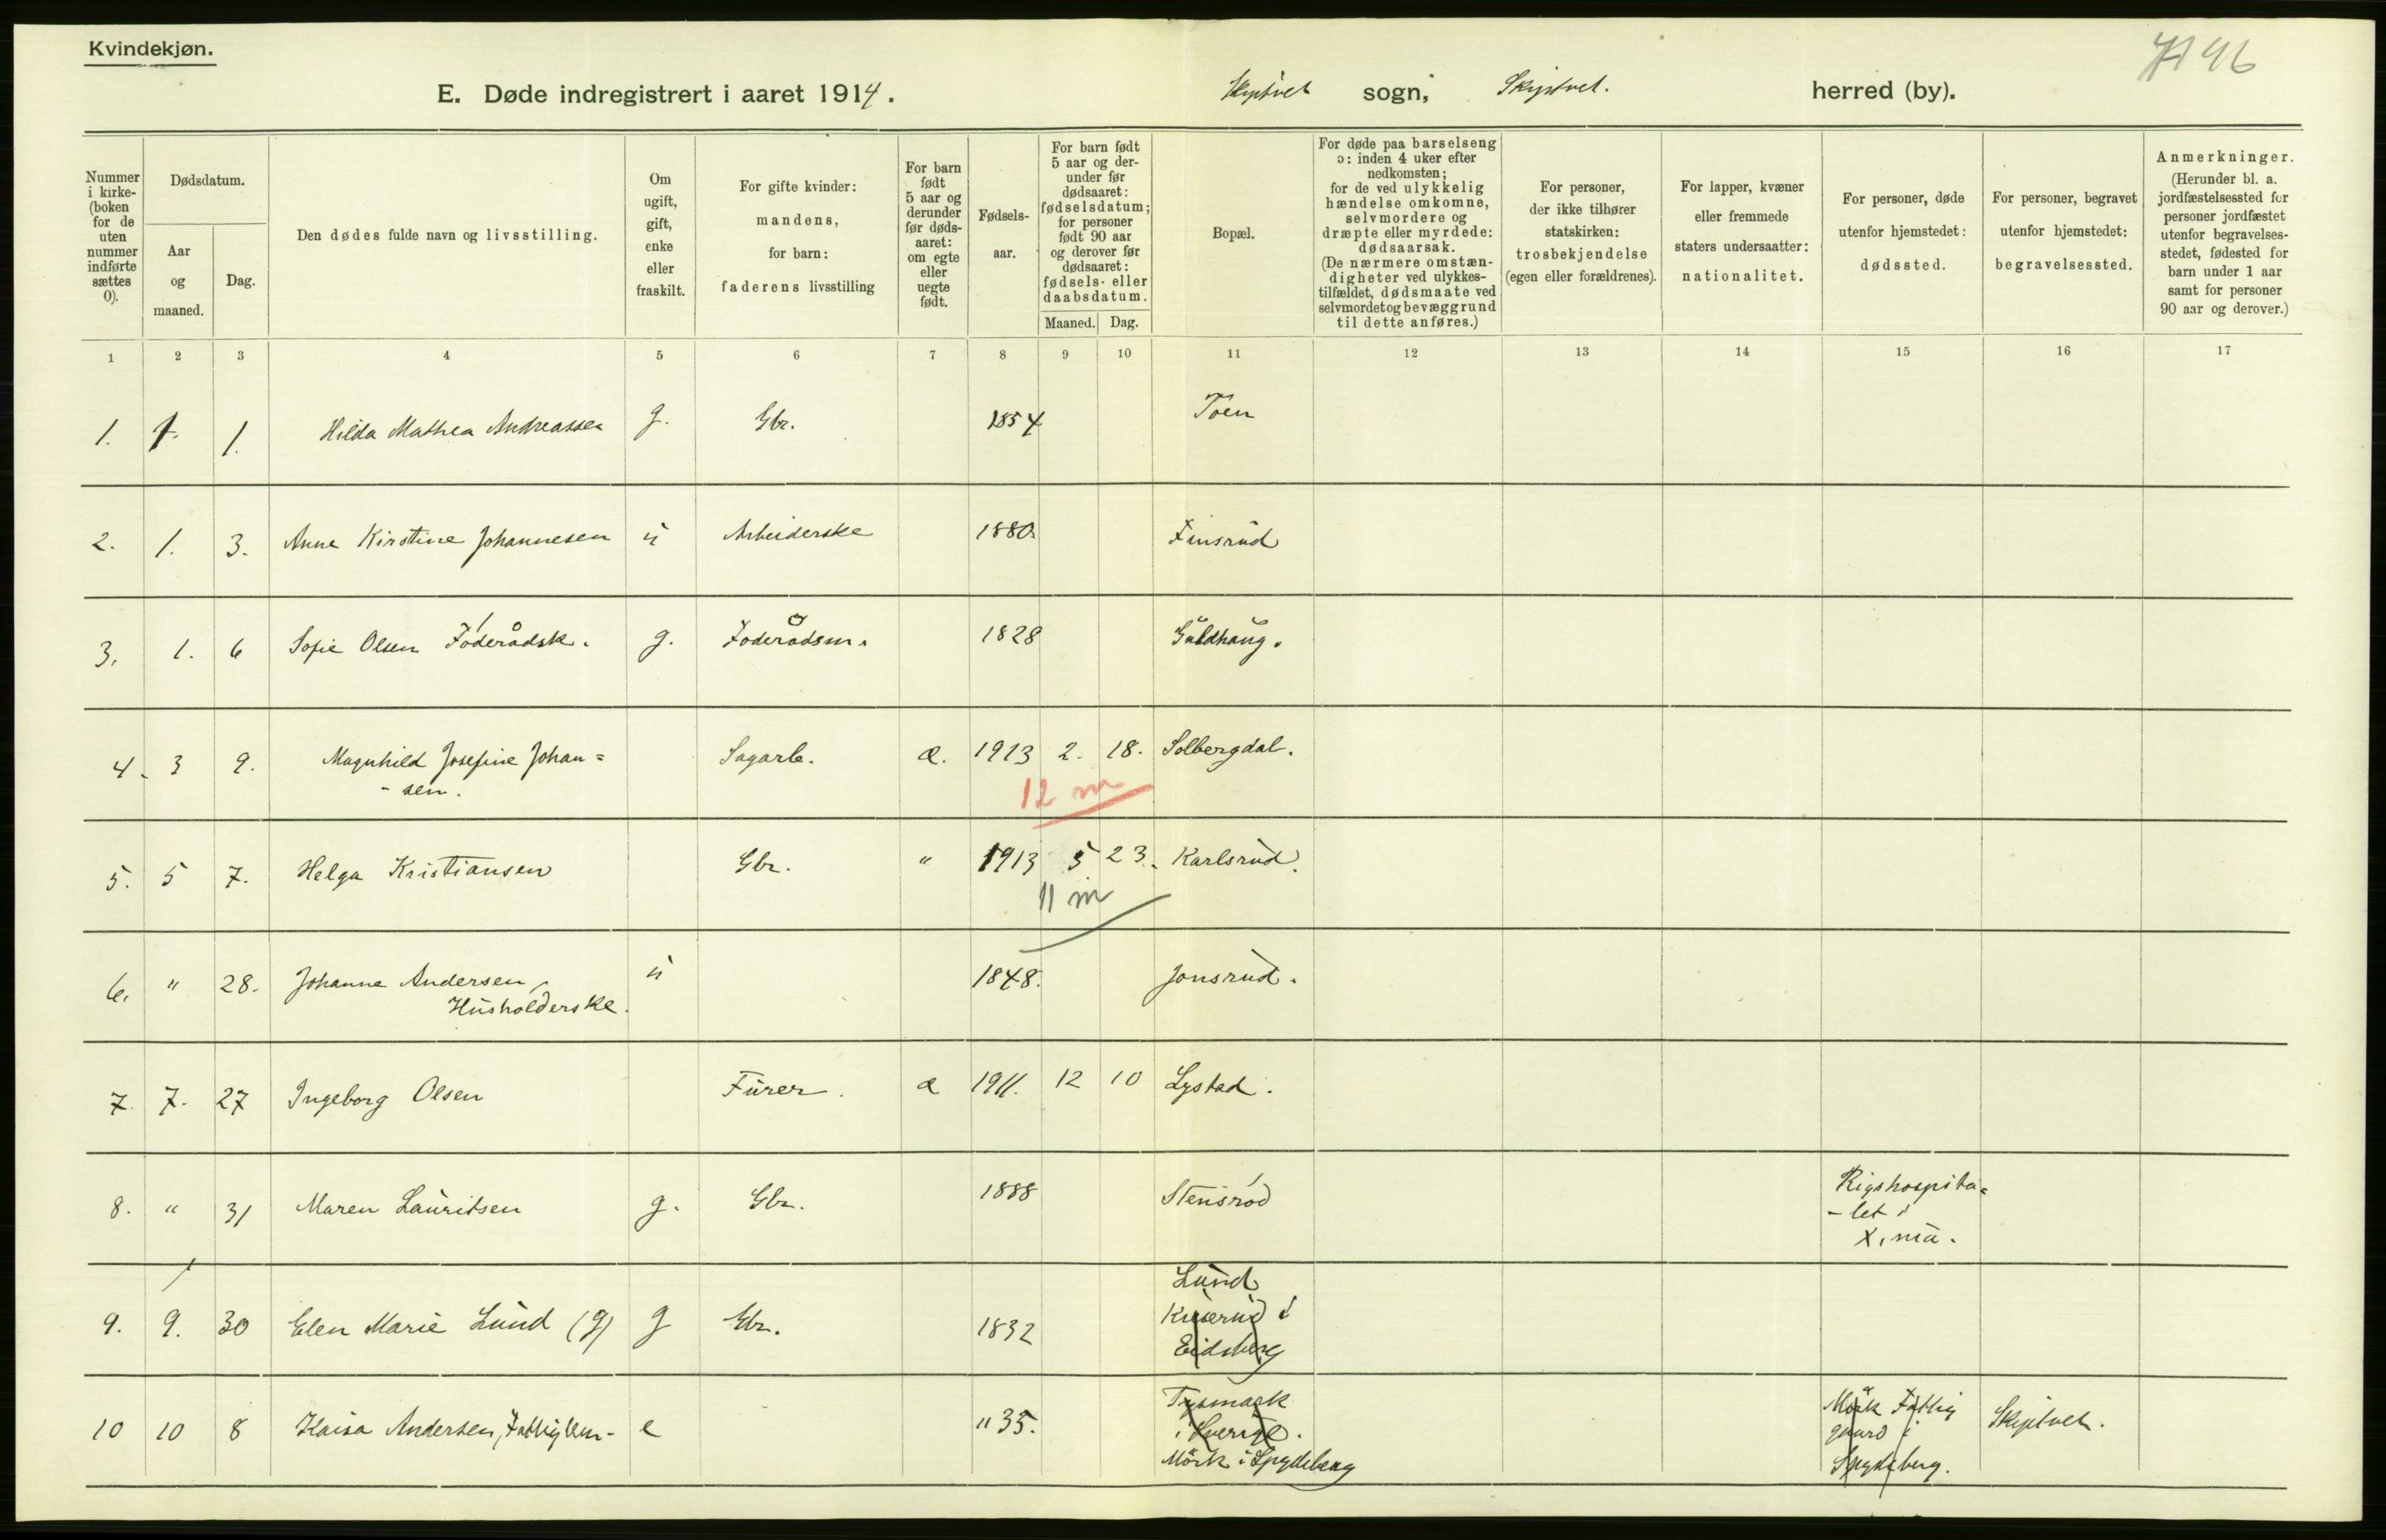 Kvindekjøn.
7A 46
E. Døde indregistrert i aaret 1914. Skiptvet sogn, Skiptvet. herred (by).
Nummer i kirke- (boken for de uten nummer indførte sættes 0).
Dødsdatum.
Aar og maaned.
Dag.
Den dødes fulde navn og livsstilling.
Om ugift, gift, enke eller fraskilt.
For gifte kvinder: mandens, for barn: faderens livsstilling
For barn født 5 aar og derunder før døds- aaret: om egte eller uegte født.
Fødsels- aar.
For barn født 5 aar og der- under før dødsaaret: fødselsdatum; for personer født 90 aar og derover før dødsaaret: fødsels- eller daabsdatum.
Maaned. Dag.
Bopæl.
For døde paa barselseng ɔ: inden 4 uker efter nedkomsten; for de ved ulykkelig hændelse omkomne, selvmordere og dræpte eller myrdede: dødsaarsak. (De nærmere omstæn- digheter ved ulykkes- tilfældet, dødsmaate ved selvmordet og bevæggrund til dette anføres.)
For personer, der ikke tilhører statskirken: trosbekjendelse (egen eller forældrenes).
For lapper, kvæner eller fremmede staters undersaatter: nationalitet.
For personer, døde utenfor hjemstedet: dødssted.
For personer, begravet utenfor hjemstedet: begravelsessted.
Anmerkninger. (Herunder bl. a. jordfæstelsessted for personer jordfæstet utenfor begravelses- stedet, fødested for barn under 1 aar samt for personer 90 aar og derover.)
1 2 3 4 5 6 7 8 9 10 11 12 13 14 15 16 17
1. 1. 1. Hilda Mathea Andreassen g. Gbr. 1854 Toen
2. 1. 3. Anne Kirstine Johannesen ú Arbeiderske 1880 Finsrud
3. 1. 6 Sofie Olsen Föderådsk. g. Foderådsm. 1828 Guldhaug.
4. 3 9. Magnhild Josefine Johan=
- sen. Sagarb. æ. 1913 2. 18. Solbergdal.
12 m
5. 5 7. Helga Kristiansen Gbr. " 1913 5 23. Karlsrud.
11 m
6. " 28. Johanne Andersen,
Husholderske. ú 1848. Jonsrud.
7. 7. 27 Ingeborg Olsen Furer. æ 1911. 12 10 Lystad.
8. " 31 Maren Lauritsen g. Gbr. 1888 Stensrod Rigshospita=
- let i
X.nia.
9. 9. 30 Elen Marie Lund (g) g Gbr. 1832 Lund
i
Eidsberg
10 10 8 Kaisa Andersen, Fattiglem- e " 35. Tysmark
i Sverige.
Mörk i Spydeberg
Mörk Fattig
gaard i
Spydeberg.
Skiptvet.